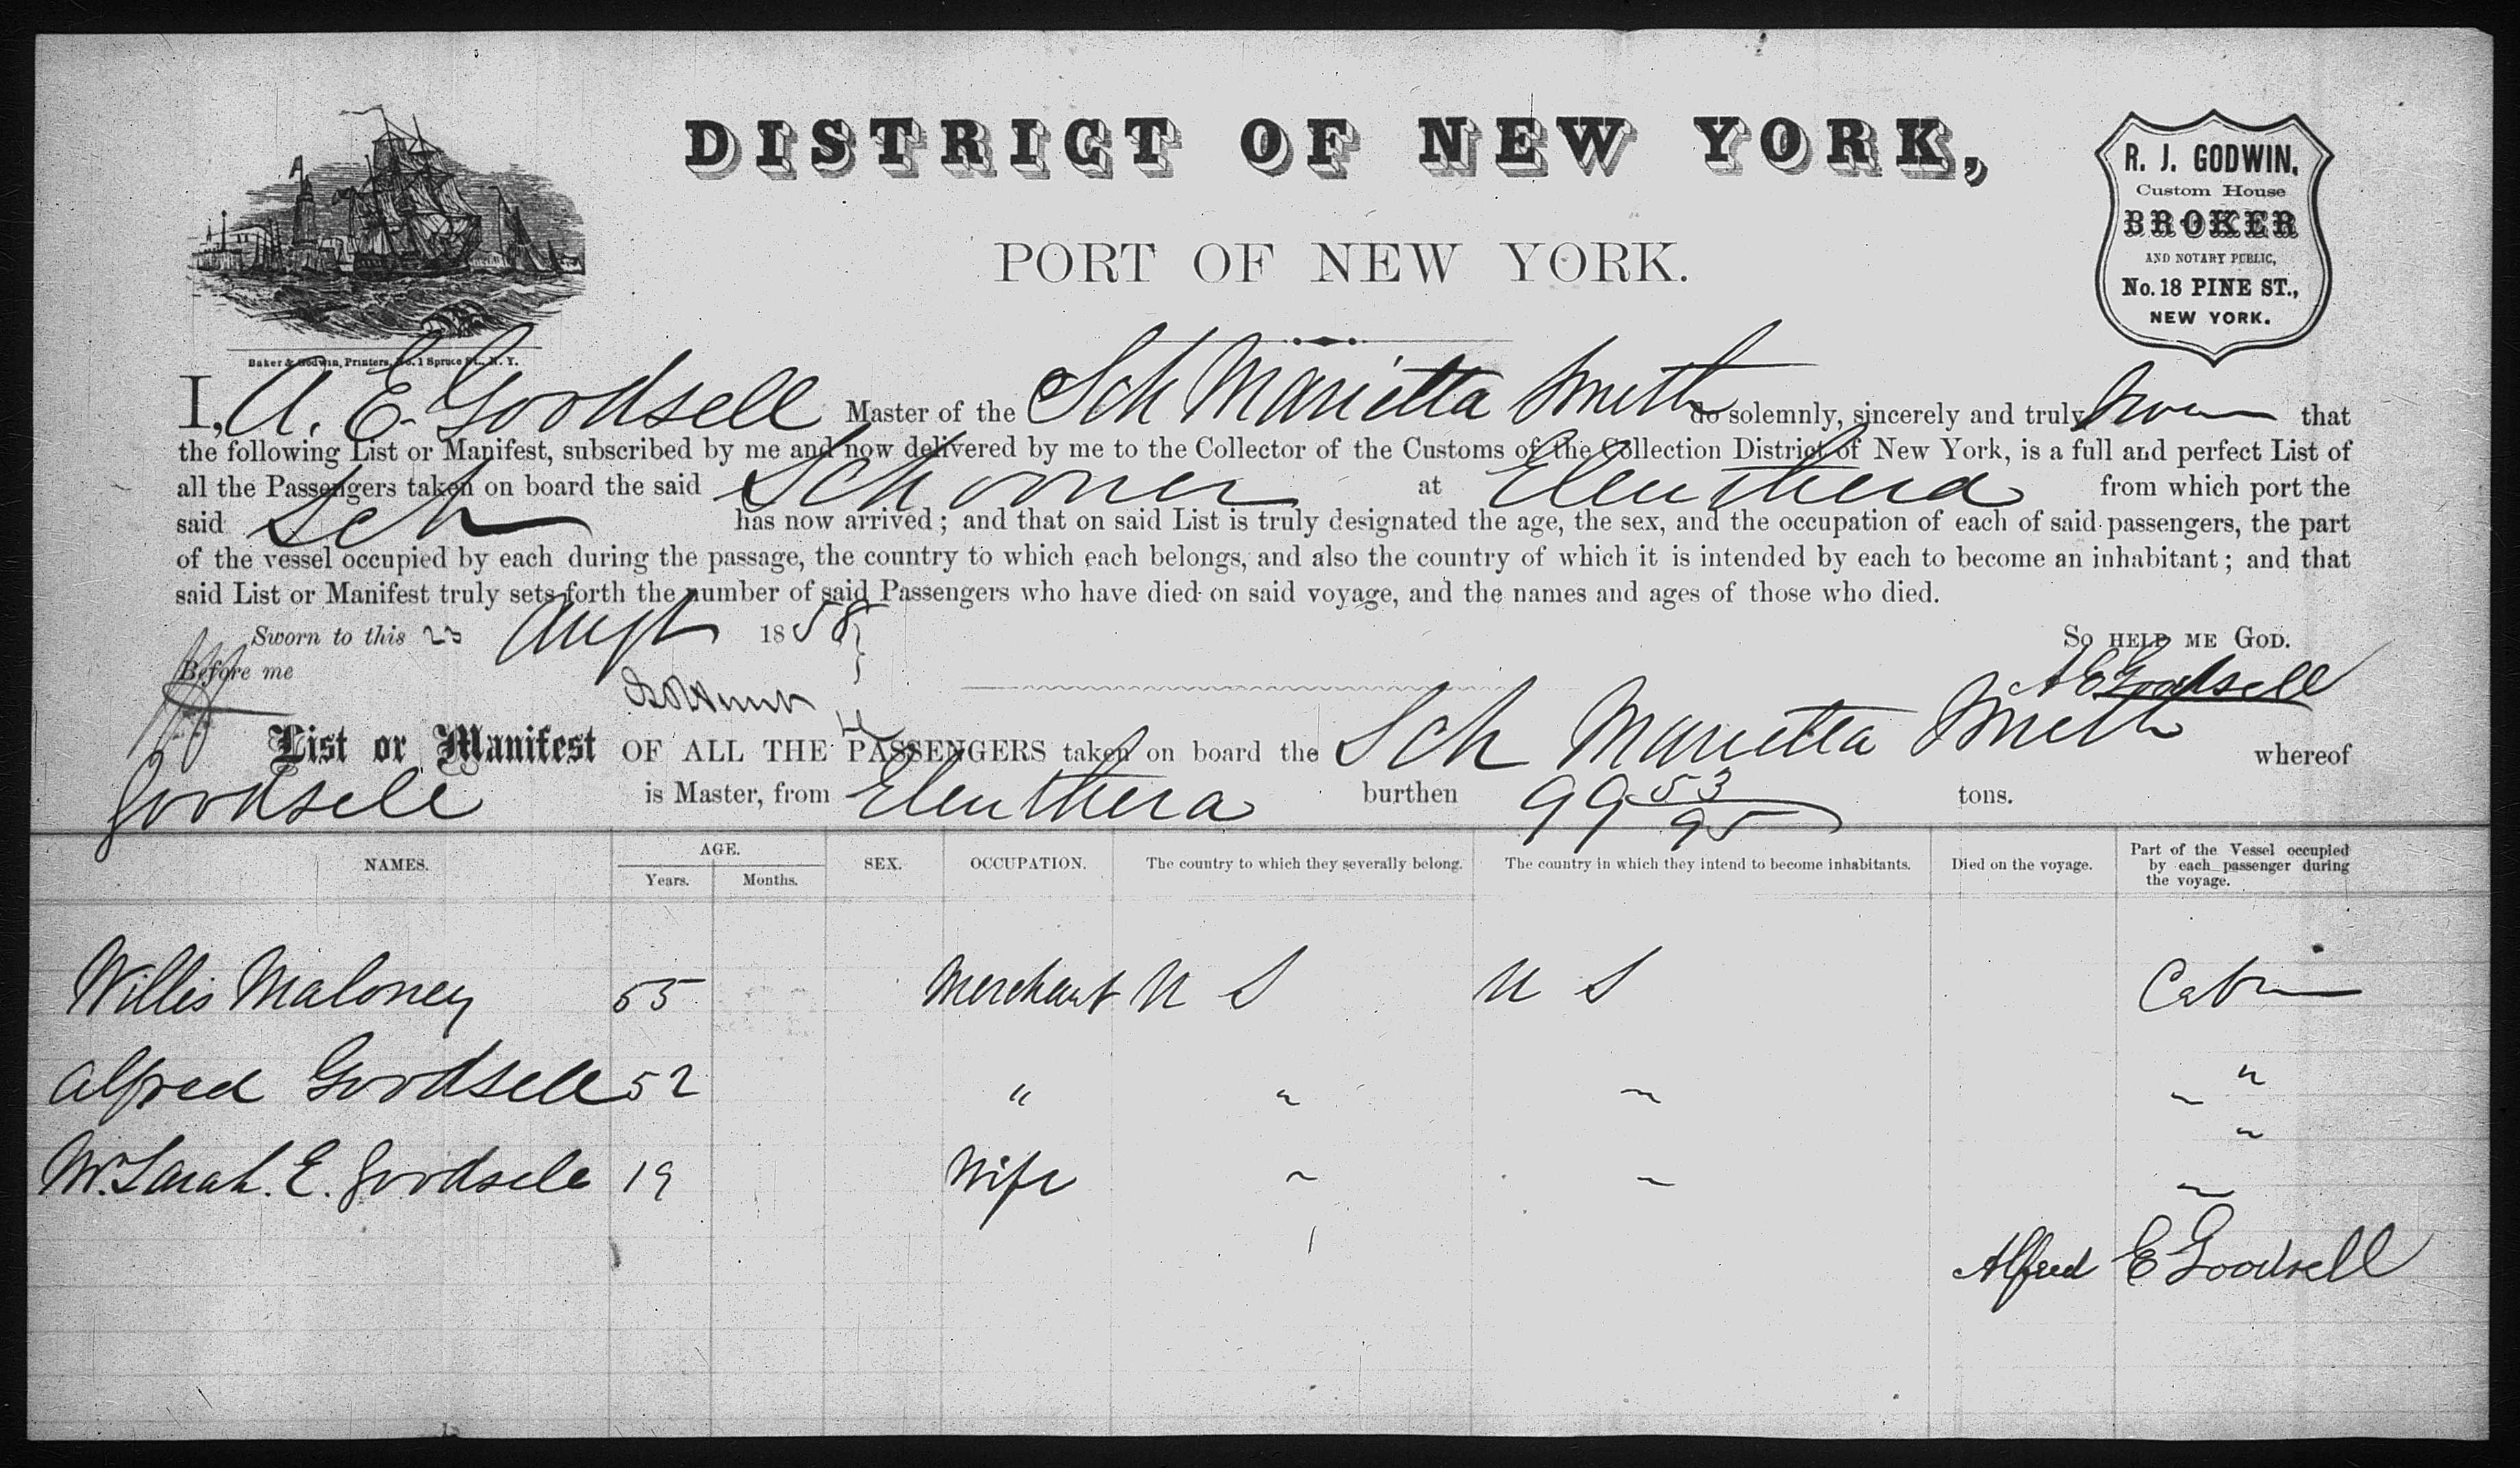 DISTRICT OF NEW YORK,
PORT OF NEW YORK.
R. J. GODWIN,
Custom House
BROKER
AND NOTARY PUBLIC,
No. 18 PINE ST.,
NEW YORK.
Baker & Godwin, Printers, No. 1 Spruce St., N. Y.
I, A. E. Goodsell Master of the Sch Marietta Smith do solemnly, sincerely and truly Swear that
the following List or Manifest, subscribed by me and now delivered by me to the Collector of the Customs of the Collection District of New York, is a full and perfect List of
all the Passengers taken on board the said Schooner at Eleuthera from which port the
said Sch has now arrived; and that on said List is truly designated the age, the sex, and the occupation of each of said passengers, the part
of the vessel occupied by each during the passage, the country to which each belongs, and also the country of which it is intended by each to become an inhabitant; and that
said List or Manifest truly sets forth the number of said Passengers who have died on said voyage, and the names and ages of those who died.
Sworn to this 23 Augt 1858 } So HELP ME GOD.
Before me A E Goodsell
List or Manifest OF ALL THE PASSENGERS taken on board the Sch Marietta Smith whereof
Goodsell is Master, from Eleuthera burthen 99 53/95 tons.
NAMES. AGE. Years. Months. SEX. OCCUPATION. The country to which they severally belong. The country in which they intend to become inhabitants. Died on the voyage. Part of the Vessel occupied by each passenger during the voyage.
Willis Maloney 55 Merchant U S U S Cabin
Alfred Goodsell 52 " " " " "
Mrs Sarah. E. Goodsell 19 Wife " " " "
Alfred E Goodsell